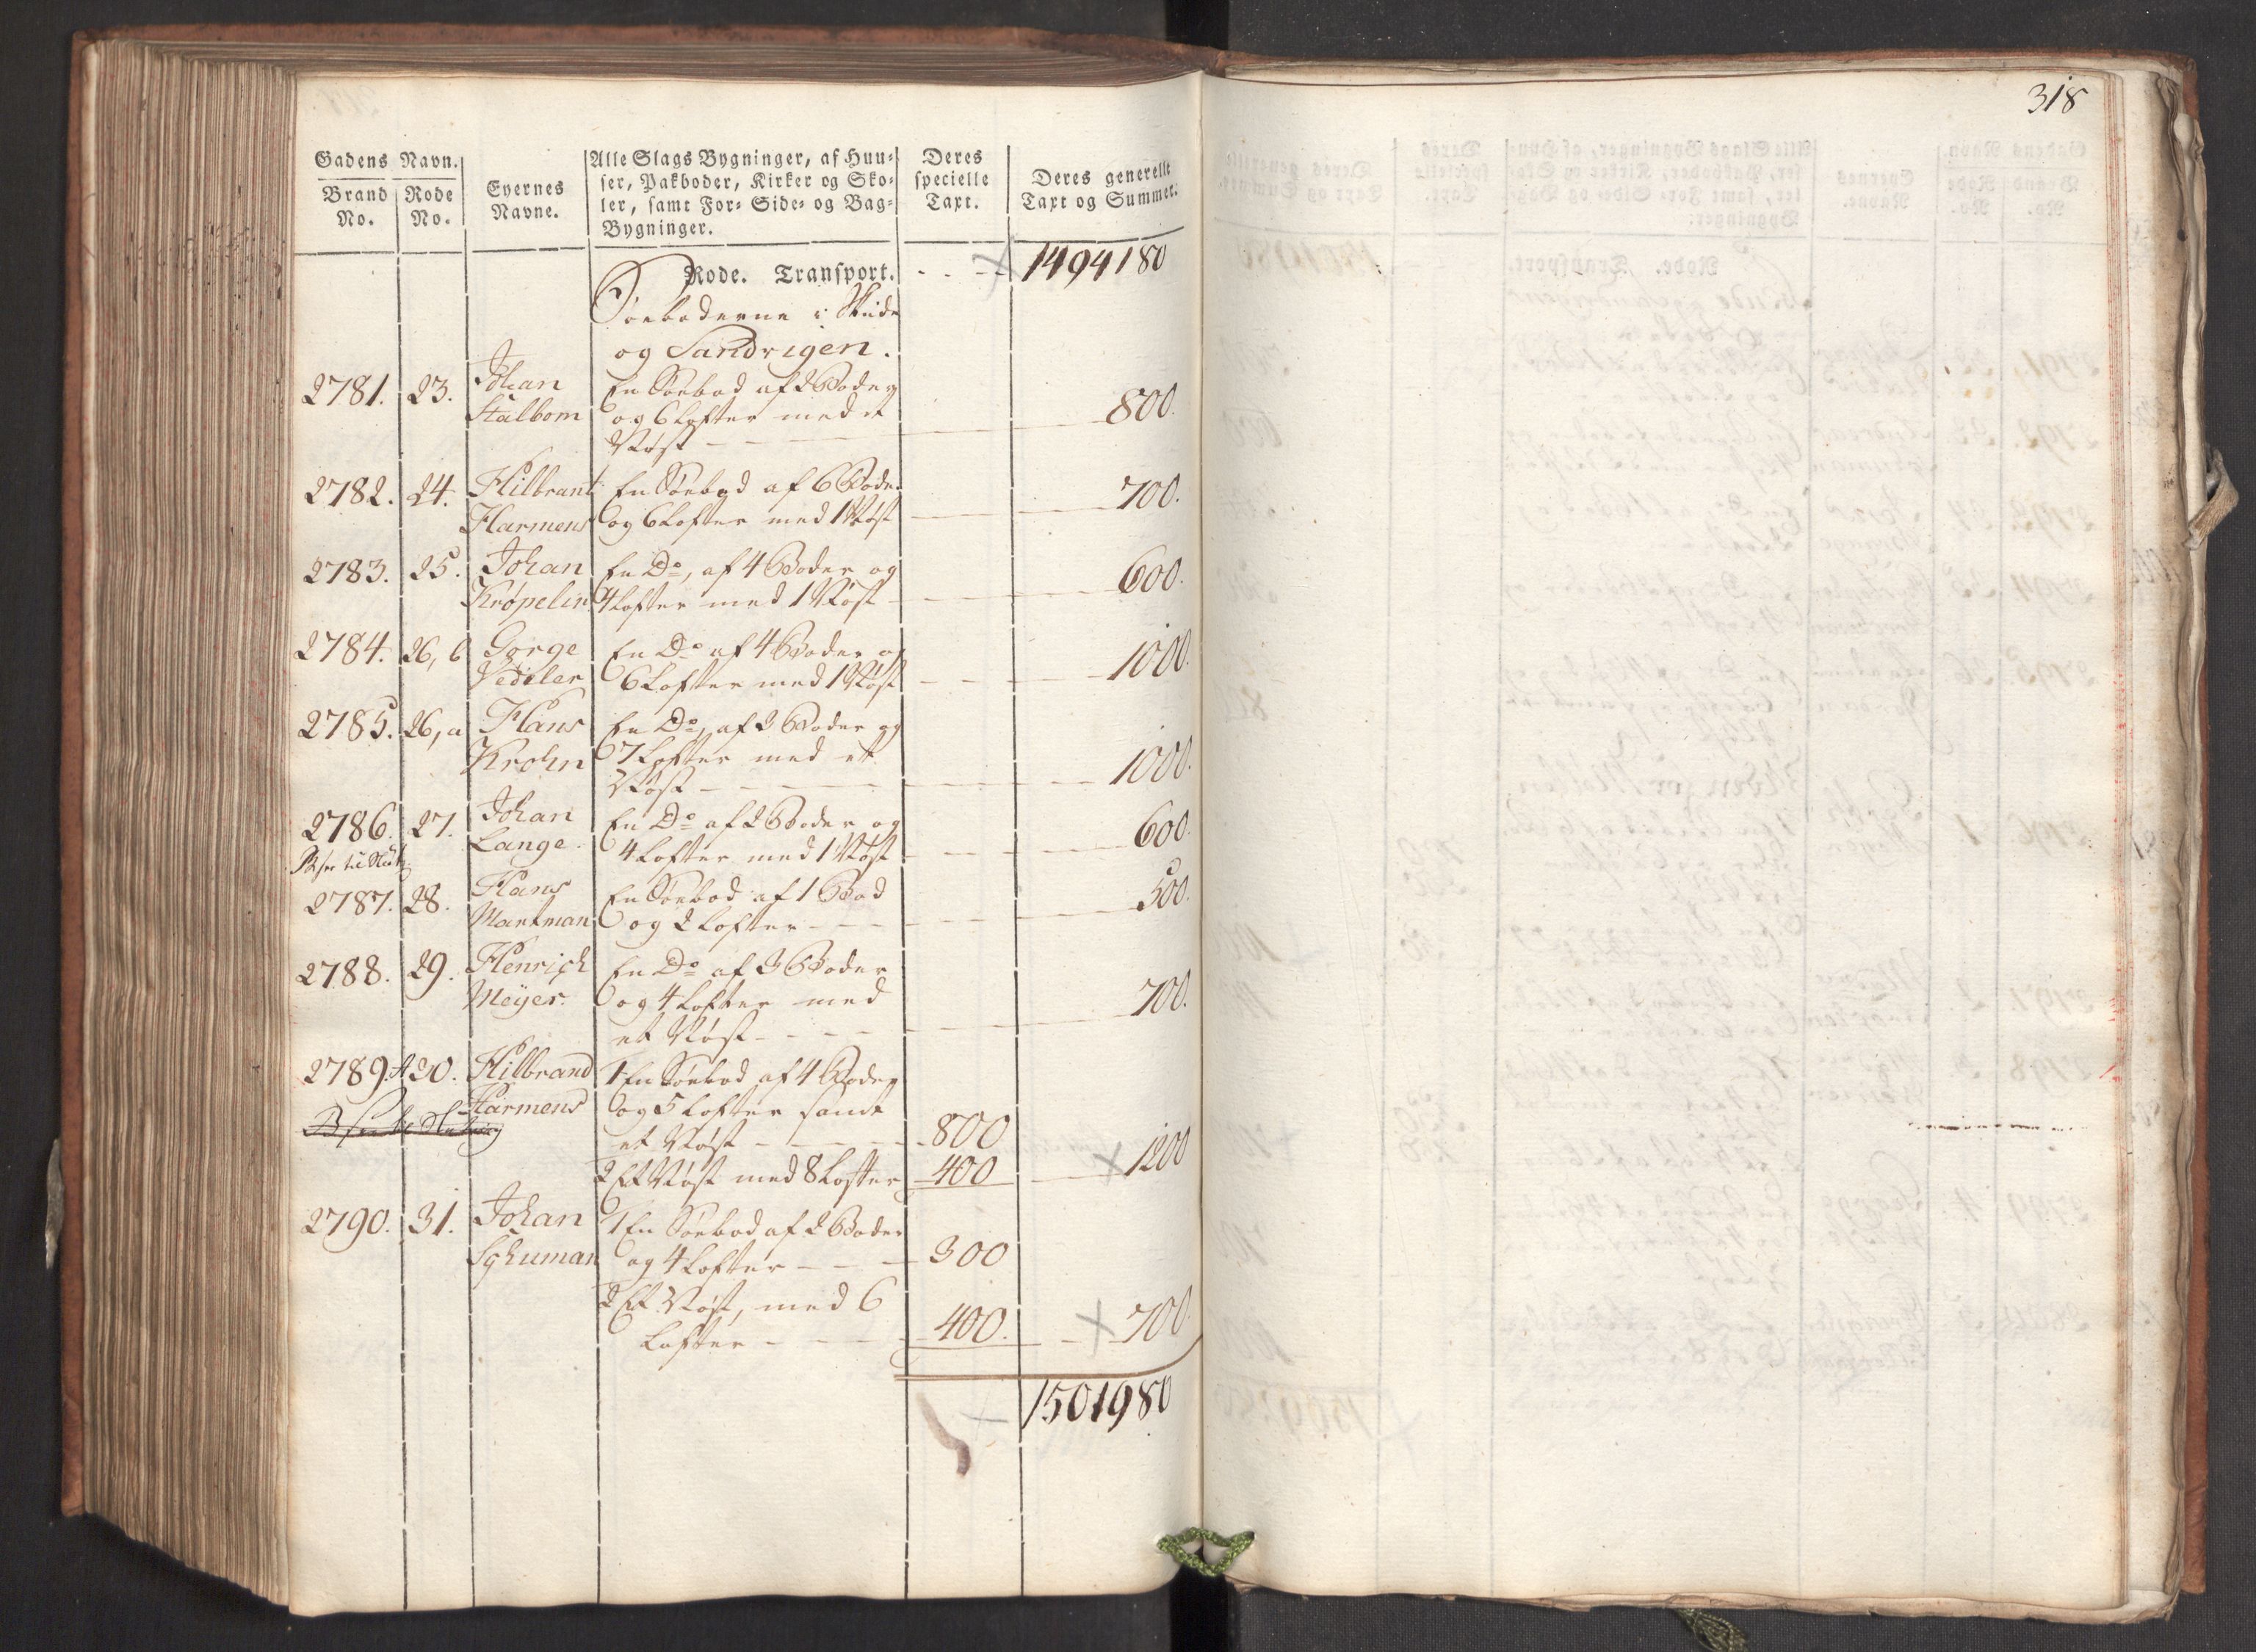 318
Gadens Navn.
Brand No.
Rode No.
Eyernes Navne.
Alle Slags Bygninger, af Huu-
ser, Pakboder, Kirker og Sko-
ler, samt For- Side- og Bag-
Bygninger.
Deres
specielle
Taxt.
Deres generelle
Taxt og Summer.
Rode. Transport. 1494180
Søeboderne i Skude
og Sandvigen.
2781. 23. Johan En Søebod af 2 Boder
Stalbom og 6 Lofter med et 800.
Røst
2782. 24. Hilbrant En Søebod af 6 Boder 700.
Harmens og 6 Lofter med 1 Røst
2783. 25. Johan En Do, af 4 Boder og 600.
Krøpelin 4 Lofter med 1 Røst
2784. 26, b Gorge En Do af 4 Boder og 1000.
Vedeler 6 Lofter med 1 Røst
2785. 26, a Hans En Do, af 3 Boder og
Krohn 7 Lofter med et 1000.
Røst
2786. 27. Johan En Do af 2 Boder og 600
Lange. 4 Lofter med 1 Røst
2787. 28. Hans En Søebod af 1 Bod 500.
Martman og 2 Lofter
2788. 29. Henrich En Do af 3 Boder
Meÿer. og 4 Lofter med 700.
et Røst
2789. A 30. Hilbrand 1 En Søebod af 4 Boder
Harmens og 5 Lofter samt
et Røst 800
2 Et Røst med 8 Lofter 400 1200
2790. 31. Johan 1 En Søebod af 2 Boder
Schuman og 4 Lofter 300
2 Et Røst, med 6
Lofter 400. 700.
1501980